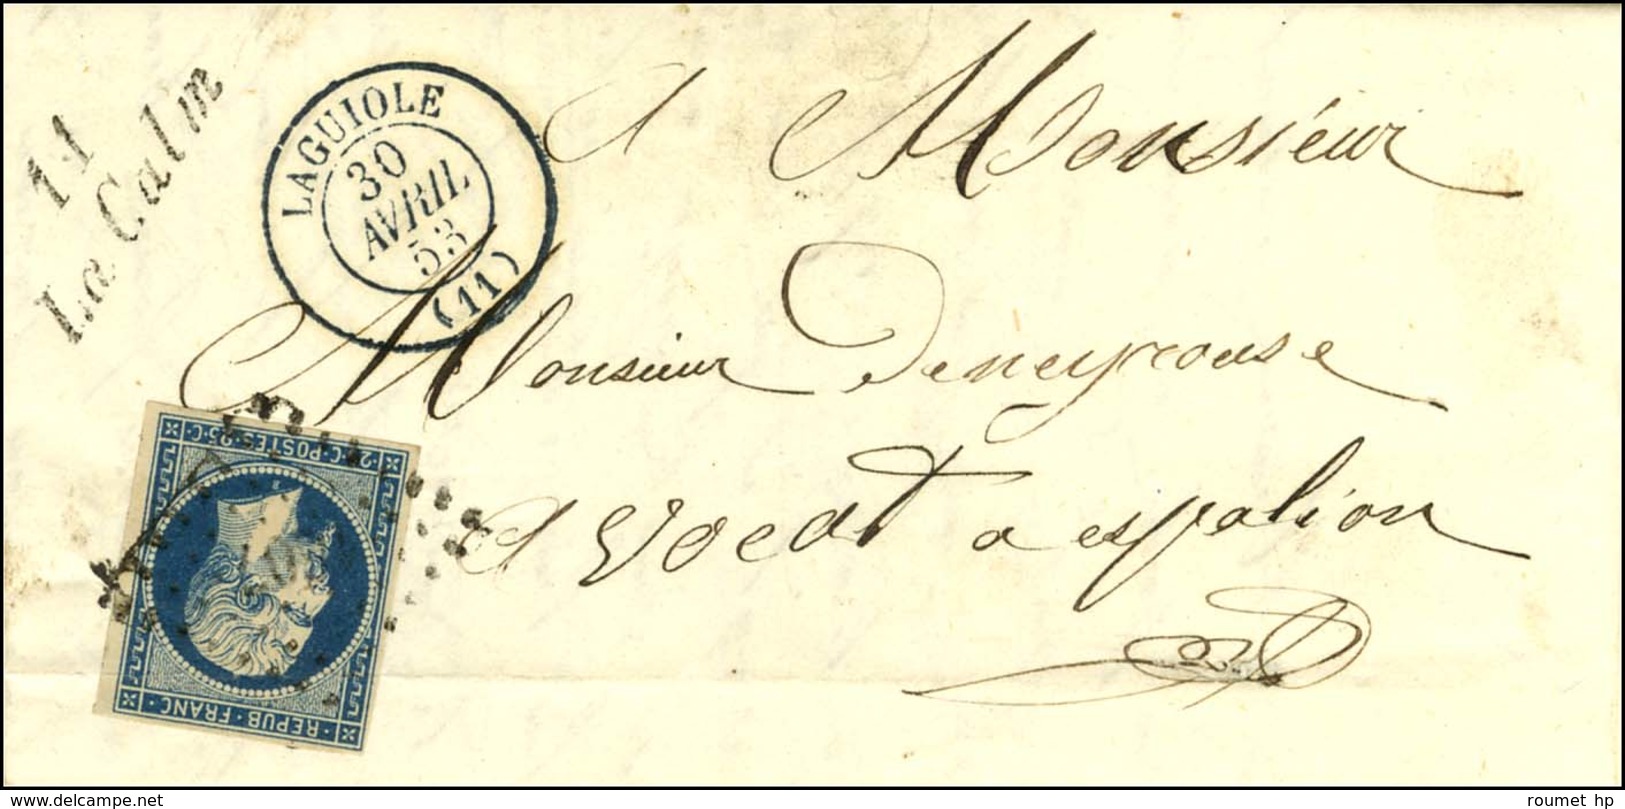 11
La Calm
LAGUIOLE
30
AVRIL
53
(11)
A Monsieur
Monsieur Deneyrouse
Avocat a espalion
2·C·POSTES·25·C·
REPUB·FRANC·
roumet hp